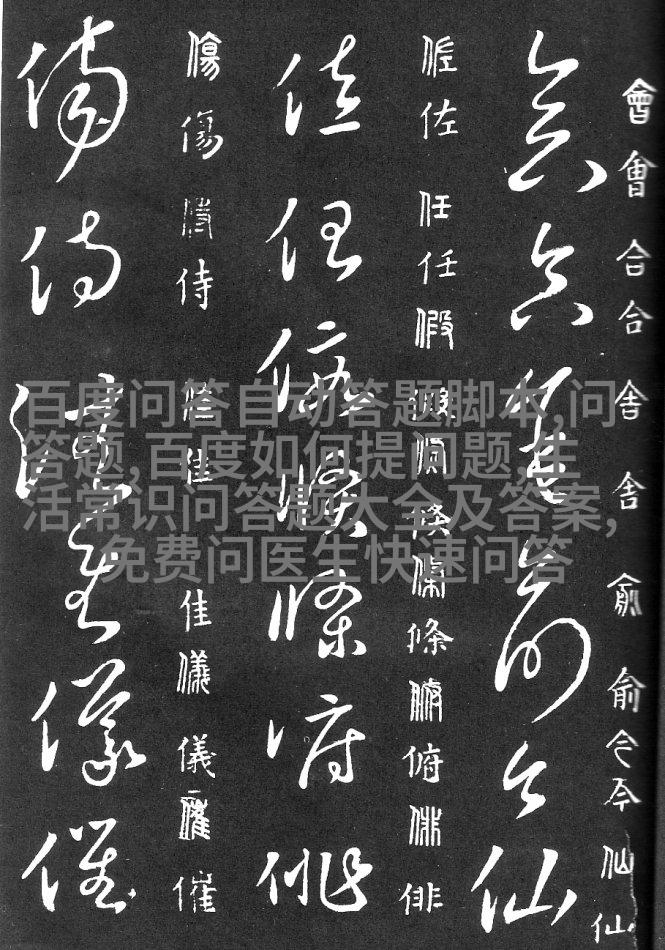 會會合合舍舍俞俞仙仙
會合舍俞仙
佐佐任任假條條俯俳
佐任假條俯俳
傷傷侍侍佳佳儀儀催
傷侍儀催
百度问答自动答题脚本,问
答题,百度如何提问题,生
活常识问答题大全及答案,
免费问医生快速问答